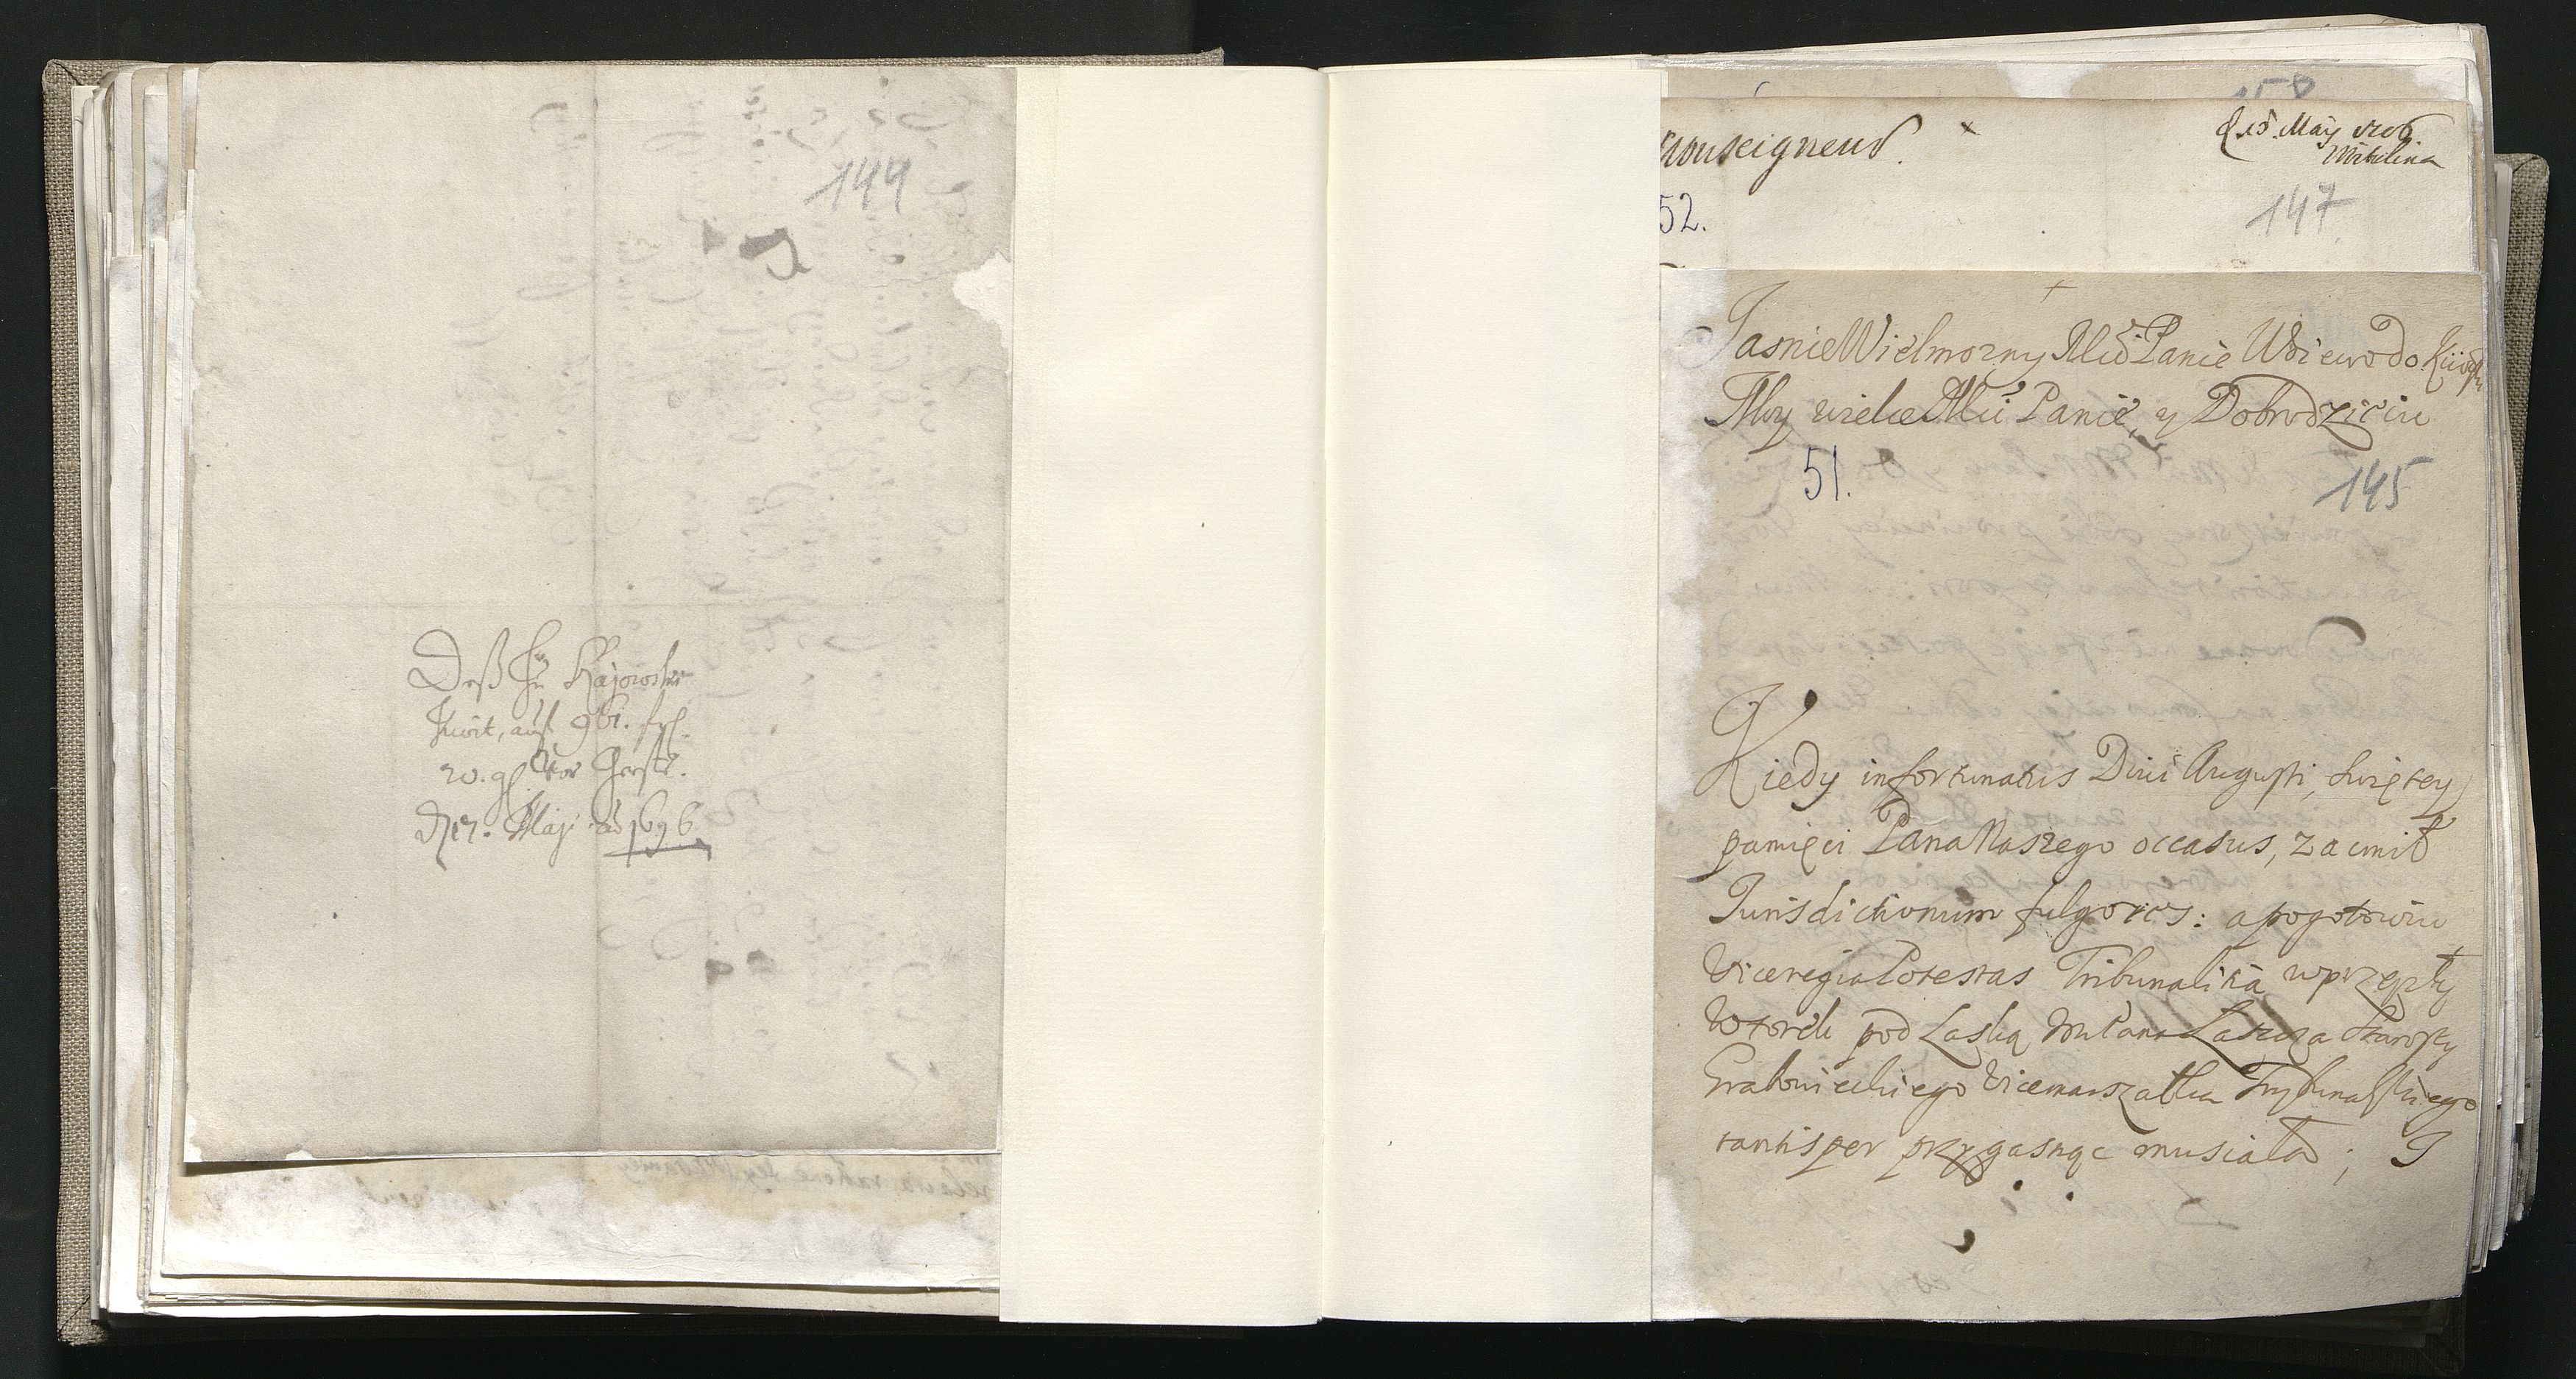 144
Deß H. Kajowsker
Quit, auf 96 r. ßl.
20. gl. vor Gerste.
D. 17. Maji ao 1696
Monseigneur.
d 15. May 1706
Mitulina
52.
147
Jasnie Wielmozny Mći Panie Woiewodo Kiiowski
Moy wielce Mći Panie, y Dobrodzieiu
51.
145
Kiedy infortunatus Divi Augusti, swiętey
pamięci Pana Naszego occasus, zacmił
Jurisdictionum fulgores: a pogotowiu
Viceregia Potestas Tribunalitia w przeszły
Wtorek pod Laską Im Pana Łaszcza Starosty
Grabowieckiego Vicemarszałka Trybunalskiego
tantisper przygasnąc musiała; I